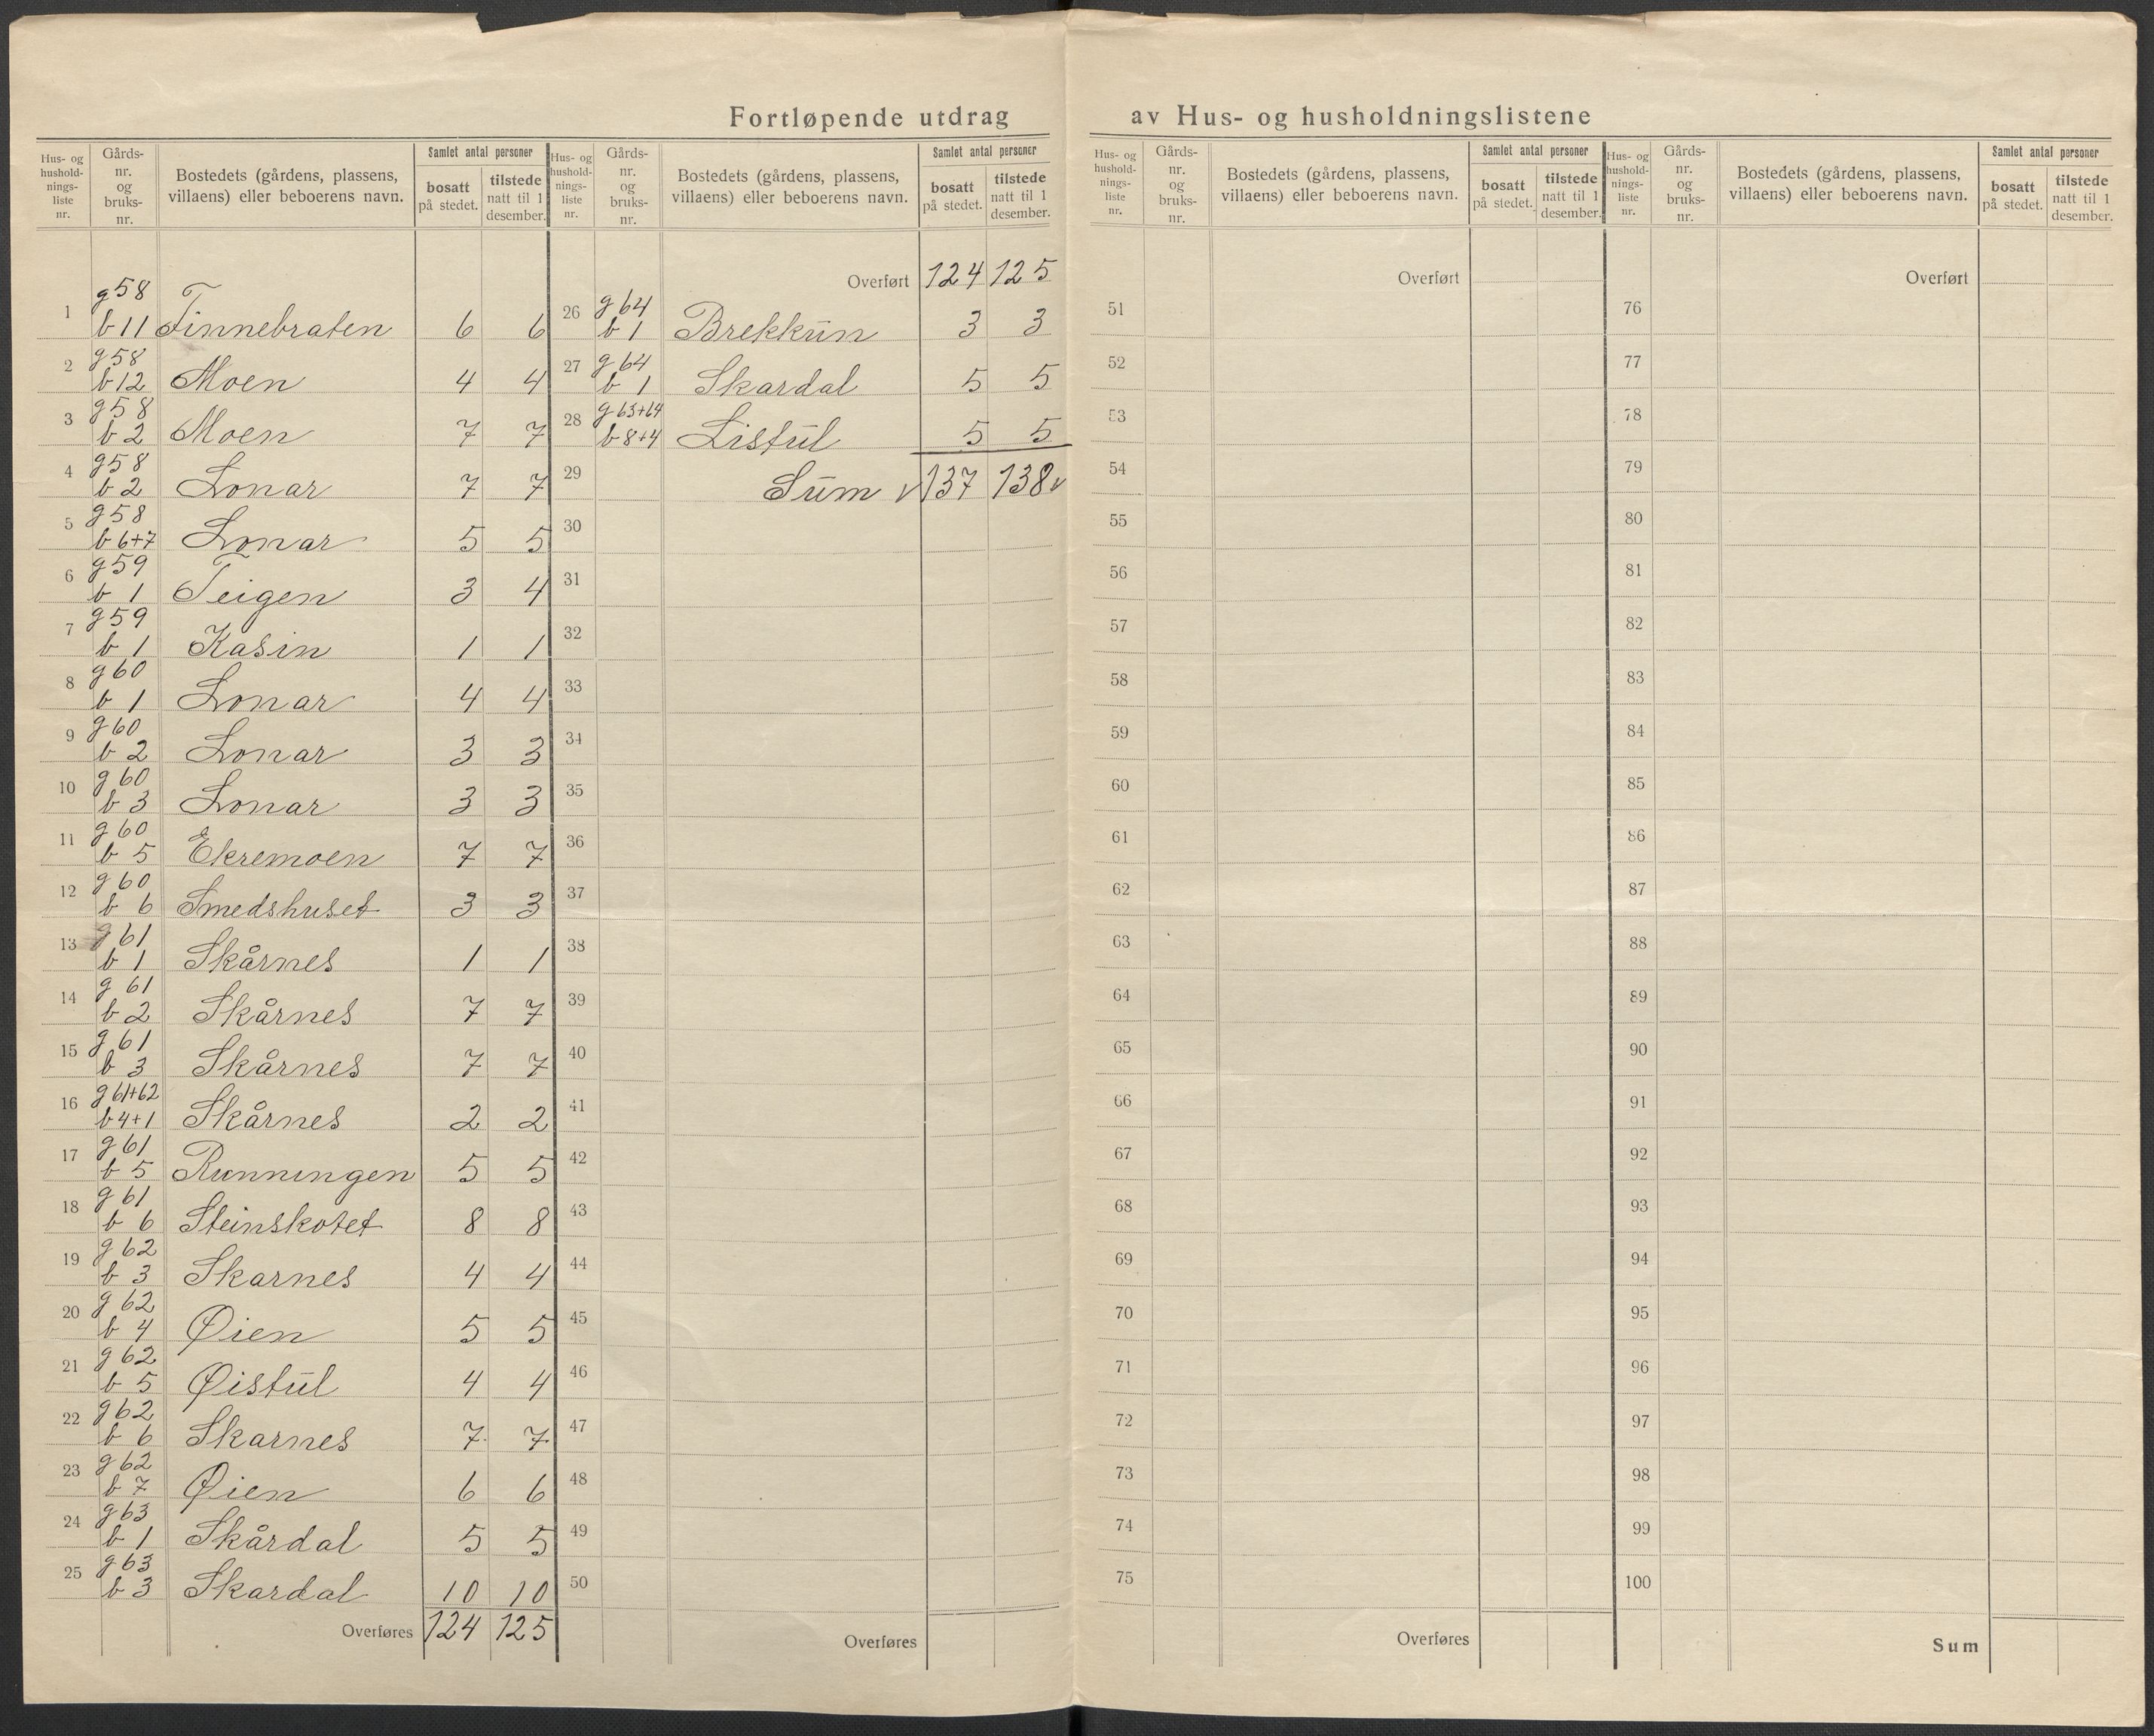 Fortløpende utdrag av Hus- og husholdningslistene
Hus- og husholdnings-liste nr. | Gårds-nr. og bruks-nr. | Bostedets (gårdens, plassens, villaens) eller beboerens navn. | Samlet antal personer | bosatt på stedet. | tilstede natt til 1 desember.
1 g58 b11 Finnebraten 6 6
2 g58 b12 Moen 4 4
3 g58 b2 Moen 7 7
4 g58 b2 Lonar 7 7
5 g58 b6+7 Lonar 5 5
6 g59 b1 Teigen 3 4
7 g59 b1 Kasin 1 1
8 g60 b1 Lonar 4 4
9 g60 b2 Lonar 3 3
10 g60 b3 Lonar 3 3
11 g60 b5 Ekremoen 7 7
12 g60 b6 Smedshuset 3 3
13 g61 b1 Skårnes 1 1
14 g61 b2 Skårnes 7 7
15 g61 b3 Skårnes 7 7
16 g61+62 b4+1 Skårnes 2 2
17 g61 b5 Runningen 5 5
18 g61 b6 Steinskotet 8 8
19 g62 b3 Skarnes 4 4
20 g62 b4 Øien 5 5
21 g62 b5 Øistul 4 4
22 g62 b6 Skarnes 7 7
23 g62 b7 Øien 6 6
24 g63 b1 Skårdal 5 5
25 g63 b3 Skardal 10 10
Overføres 124 125
Hus- og husholdnings-liste nr. | Gårds-nr. og bruks-nr. | Bostedets (gårdens, plassens, villaens) eller beboerens navn. | Samlet antal personer | bosatt på stedet. | tilstede natt til 1 desember.
Overført 124 125
26 g64 b1 Brekkun 3 3
27 g64 b1 Skardal 5 5
28 g63+64 b8+4 Listul 5 5
29 Sum 137 138
30
31
32
33
34
35
36
37
38
39
40
41
42
43
44
45
46
47
48
49
50
Overføres
Hus- og husholdnings-liste nr. | Gårds-nr. og bruks-nr. | Bostedets (gårdens, plassens, villaens) eller beboerens navn. | Samlet antal personer | bosatt på stedet. | tilstede natt til 1 desember.
Overført
51
52
53
54
55
56
57
58
59
60
61
62
63
64
65
66
67
68
69
70
71
72
73
74
75
Overføres
Hus- og husholdnings-liste nr. | Gårds-nr. og bruks-nr. | Bostedets (gårdens, plassens, villaens) eller beboerens navn. | Samlet antal personer | bosatt på stedet. | tilstede natt til 1 desember.
Overført
76
77
78
79
80
81
82
83
84
85
86
87
88
89
90
91
92
93
94
95
96
97
98
99
100
Sum